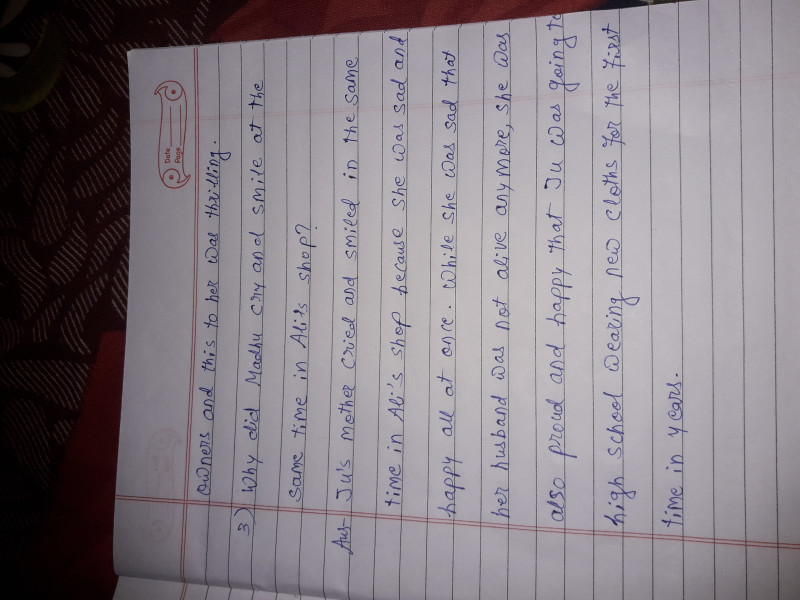 Date
Page
owners and this to her was thrilling.
3) Why did Madhu cry and smile at the
same time in Ali's shop?
Ans- Ju's mother cried and smiled in the same
time in Ali's shop because she was sad and
happy all at once. While she was sad that
her husband was not alive anymore, she was
also proud and happy that Ju was going to
high school wearing new cloths for the first
time in years.